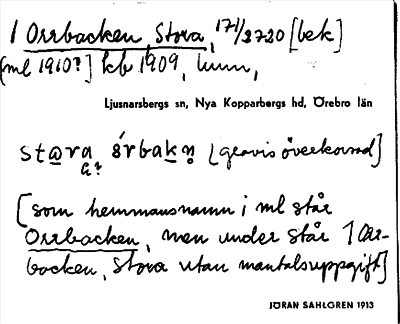 1 Orrbacken, Stora, 171/2720 [bek]
[ml 1910?] kb 1909, hmn,
Ljusnarsbergs sn, Nya Kopparbergs hd, Örebro län
[som hemmansnamn i ml står
Orrbacken, men under står 1 Orr-
backen, Stora utan mantalsuppgift]
JÖRAN SAHLGREN 1913